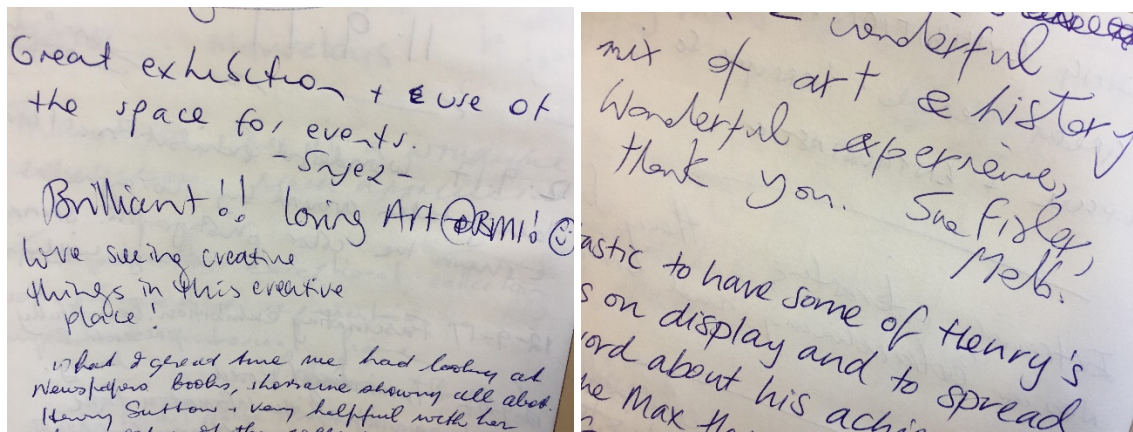 Great exhibition + use of
the space for events.
Brilliant!! loving Art@BMI!
love seeing creative
things in this creative
place!
what a great time we had looking at
Newspapers Books, Lorraine showing all about
Henry Sutton + very helpful with her
wonderful
mix of art & history
Wonderful experience,
thank you. Sue Fisler,
Melb.
astic to have some of Henry's
s on display and to spread
ord about his achi
he Max